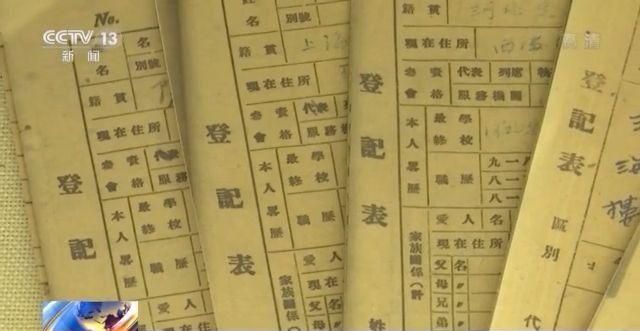 CCTV 13
新闻
高清
No.
名
別號
籍貫
現在住所
參會資格
代表
服務
登記
本人畧歷
最終學校
職歷
愛人
名
別號
籍貫
上海
現在住所
參會資格
代表
列
服務機
登記表
本人畧歷
最終學校
職歷
愛人
家族關係
現在
父
母
兄
籍貫
現在住所
參會資格
代表
列席
服務機關
登記表
姓
本人畧歷
最終學校
職歷
九一八
八一
八一
愛人
名
家族關係(計
現在住所
父名
母
兄弟
登記表
區別
代